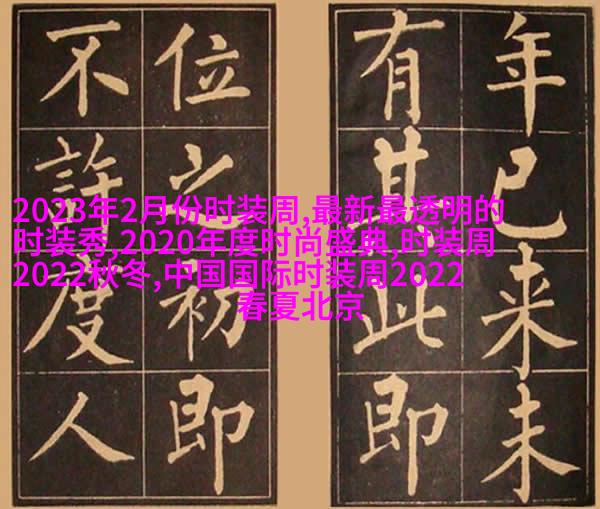 年已来未
有其此即
位之初即
不許度人
2023年2月份时装周,最新最透明的
时装秀,2020年度时尚盛典,时装周
2022秋冬,中国国际时装周2022
春夏北京